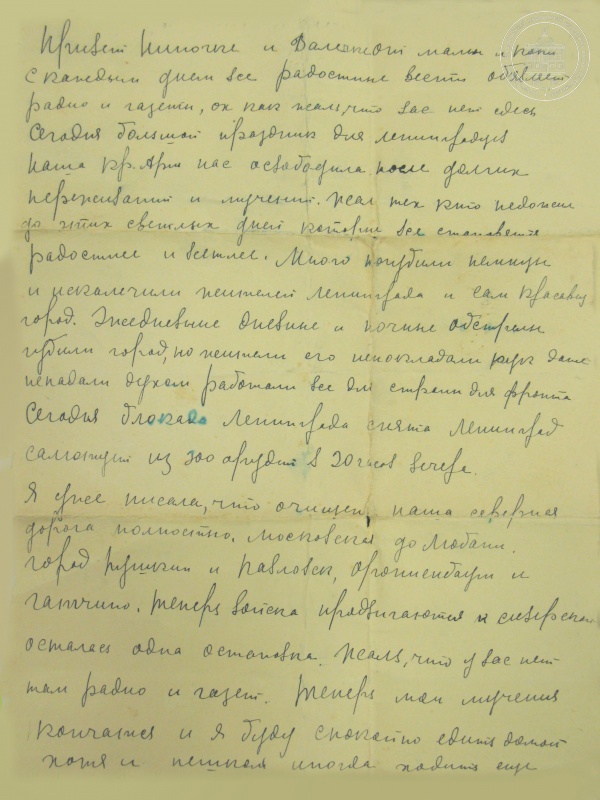 Привет Ниночке и Валечке от мамы и папы
с каждым днем все радостные вести объявляет
радио и газеты, ох как жаль, что вас нет здесь
Сегодня большой праздник для ленинградцев
наша кр. Арм нас освободила после долгих
переживаний и мучений. Жаль тех кто недожил
до этих светлых дней которые все становятся
радостнее и светлее. Много погубили немцы
и искалечили жителей Ленинграда и сам красавец
город. Ежедневные дневные и ночные обстрелы
губили город, но жители его непокладали рук даже
непадали духом работали все для страны для фронта
Сегодня блокада Ленинграда снята Ленинград
салютует из 300 орудий в 20 часов вечера.
Я уже писала, что очищена наша северная
дорога полностью. Московская до Любани.
город Пушкин и Павловск, Ораниенбаум и
Гатчино. Теперь войска продвигаются к Сиверской
осталась одна остановка. Жаль, что у вас нет
там радио и газет. Теперь мои мучения
кончатся и я буду спокойно ездить домой
хотя и пешком иногда ходить еще